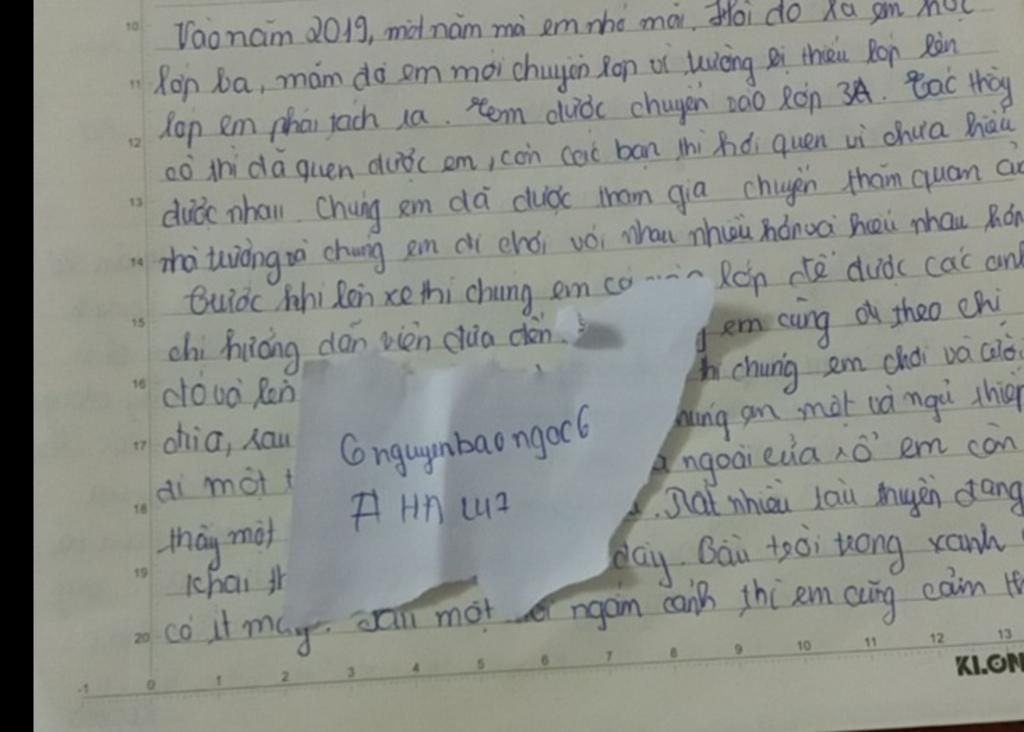 Vào năm 2019, một năm mà em nhớ mãi. Hồi đó là em học
lớp ba, năm đó em mới chuyển lớp vì trường bị thiếu lớp lên
lớp em phải tách ra. em được chuyển vào lớp 3A. Các thầy
cô thì đã quen được em, còn các bạn thì hơi quen vì chưa hiểu
được nhau. Chúng em đã được tham gia chuyến thăm quan
nhà trường và chúng em đi chơi với nhau nhiều hơn và hiểu nhau hơn
Trước khi lên xe thì chúng em có lớp để được các anh
chị hướng dẫn viên đưa đến. em cũng đi theo chỉ
đó và lên chúng em chơi và
chia, sau ăn một và ngủ thiếp
đi một ngoài cửa sổ em còn
thấy một Rất nhiều tàu thuyền đang
khai đây. Bầu trời trong xanh
có ít mây. Sau một ngắm cảnh thì em cũng cảm
6nguyenbaongoc6
A HA LU7
10
11
12
13
14
15
16
17
18
19
20
-1 0 1 2 3 4 5 6 7 8 9 10 11 12 13
KLON